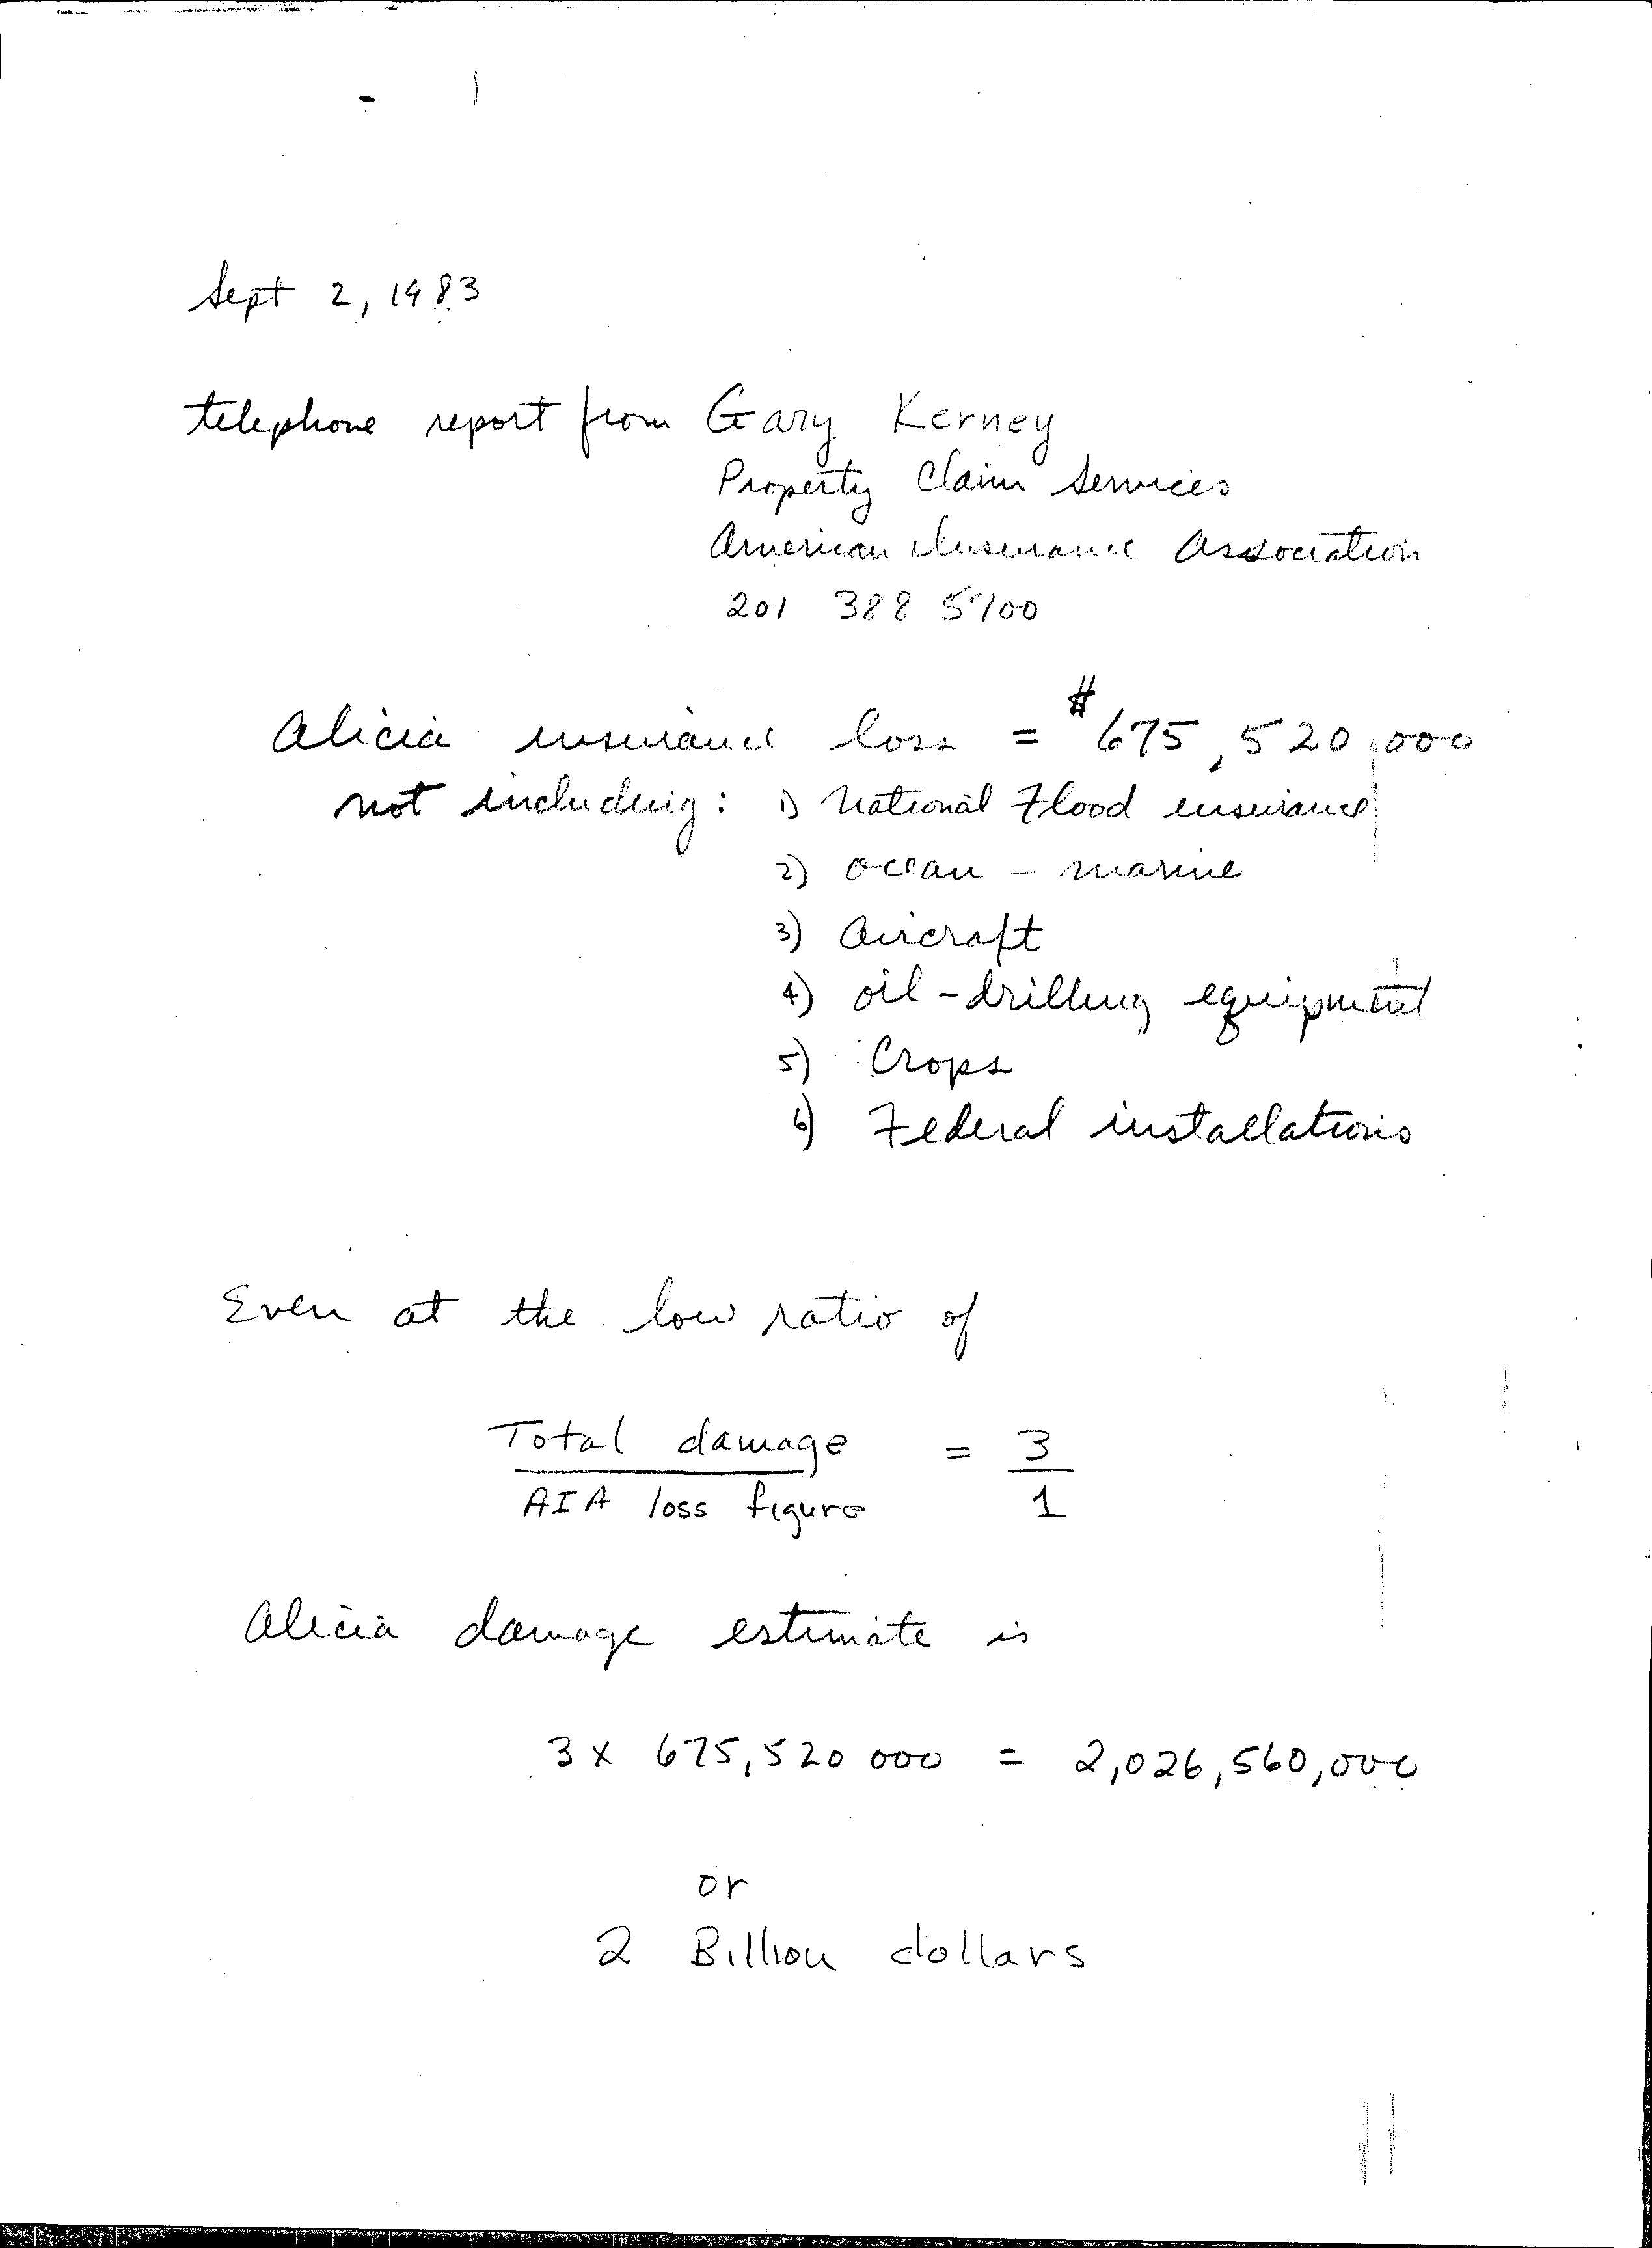 Sept 2, 1983
telephone report from Gary Kerney
Property Claim Services
American Insurance Association
201 388 5700
Alicia insurance loss = $675,520,000
not including: 1) National Flood insurance
2) ocean - marine
3) Aircraft
4) oil-drilling equipment
5) Crops
6) Federal installations
Even at the low ratio of
Total damage = 3
AIA loss figure 1
Alicia damage estimate is
3 x 675,520 000 = 2,026,560,000
or
2 Billion dollars